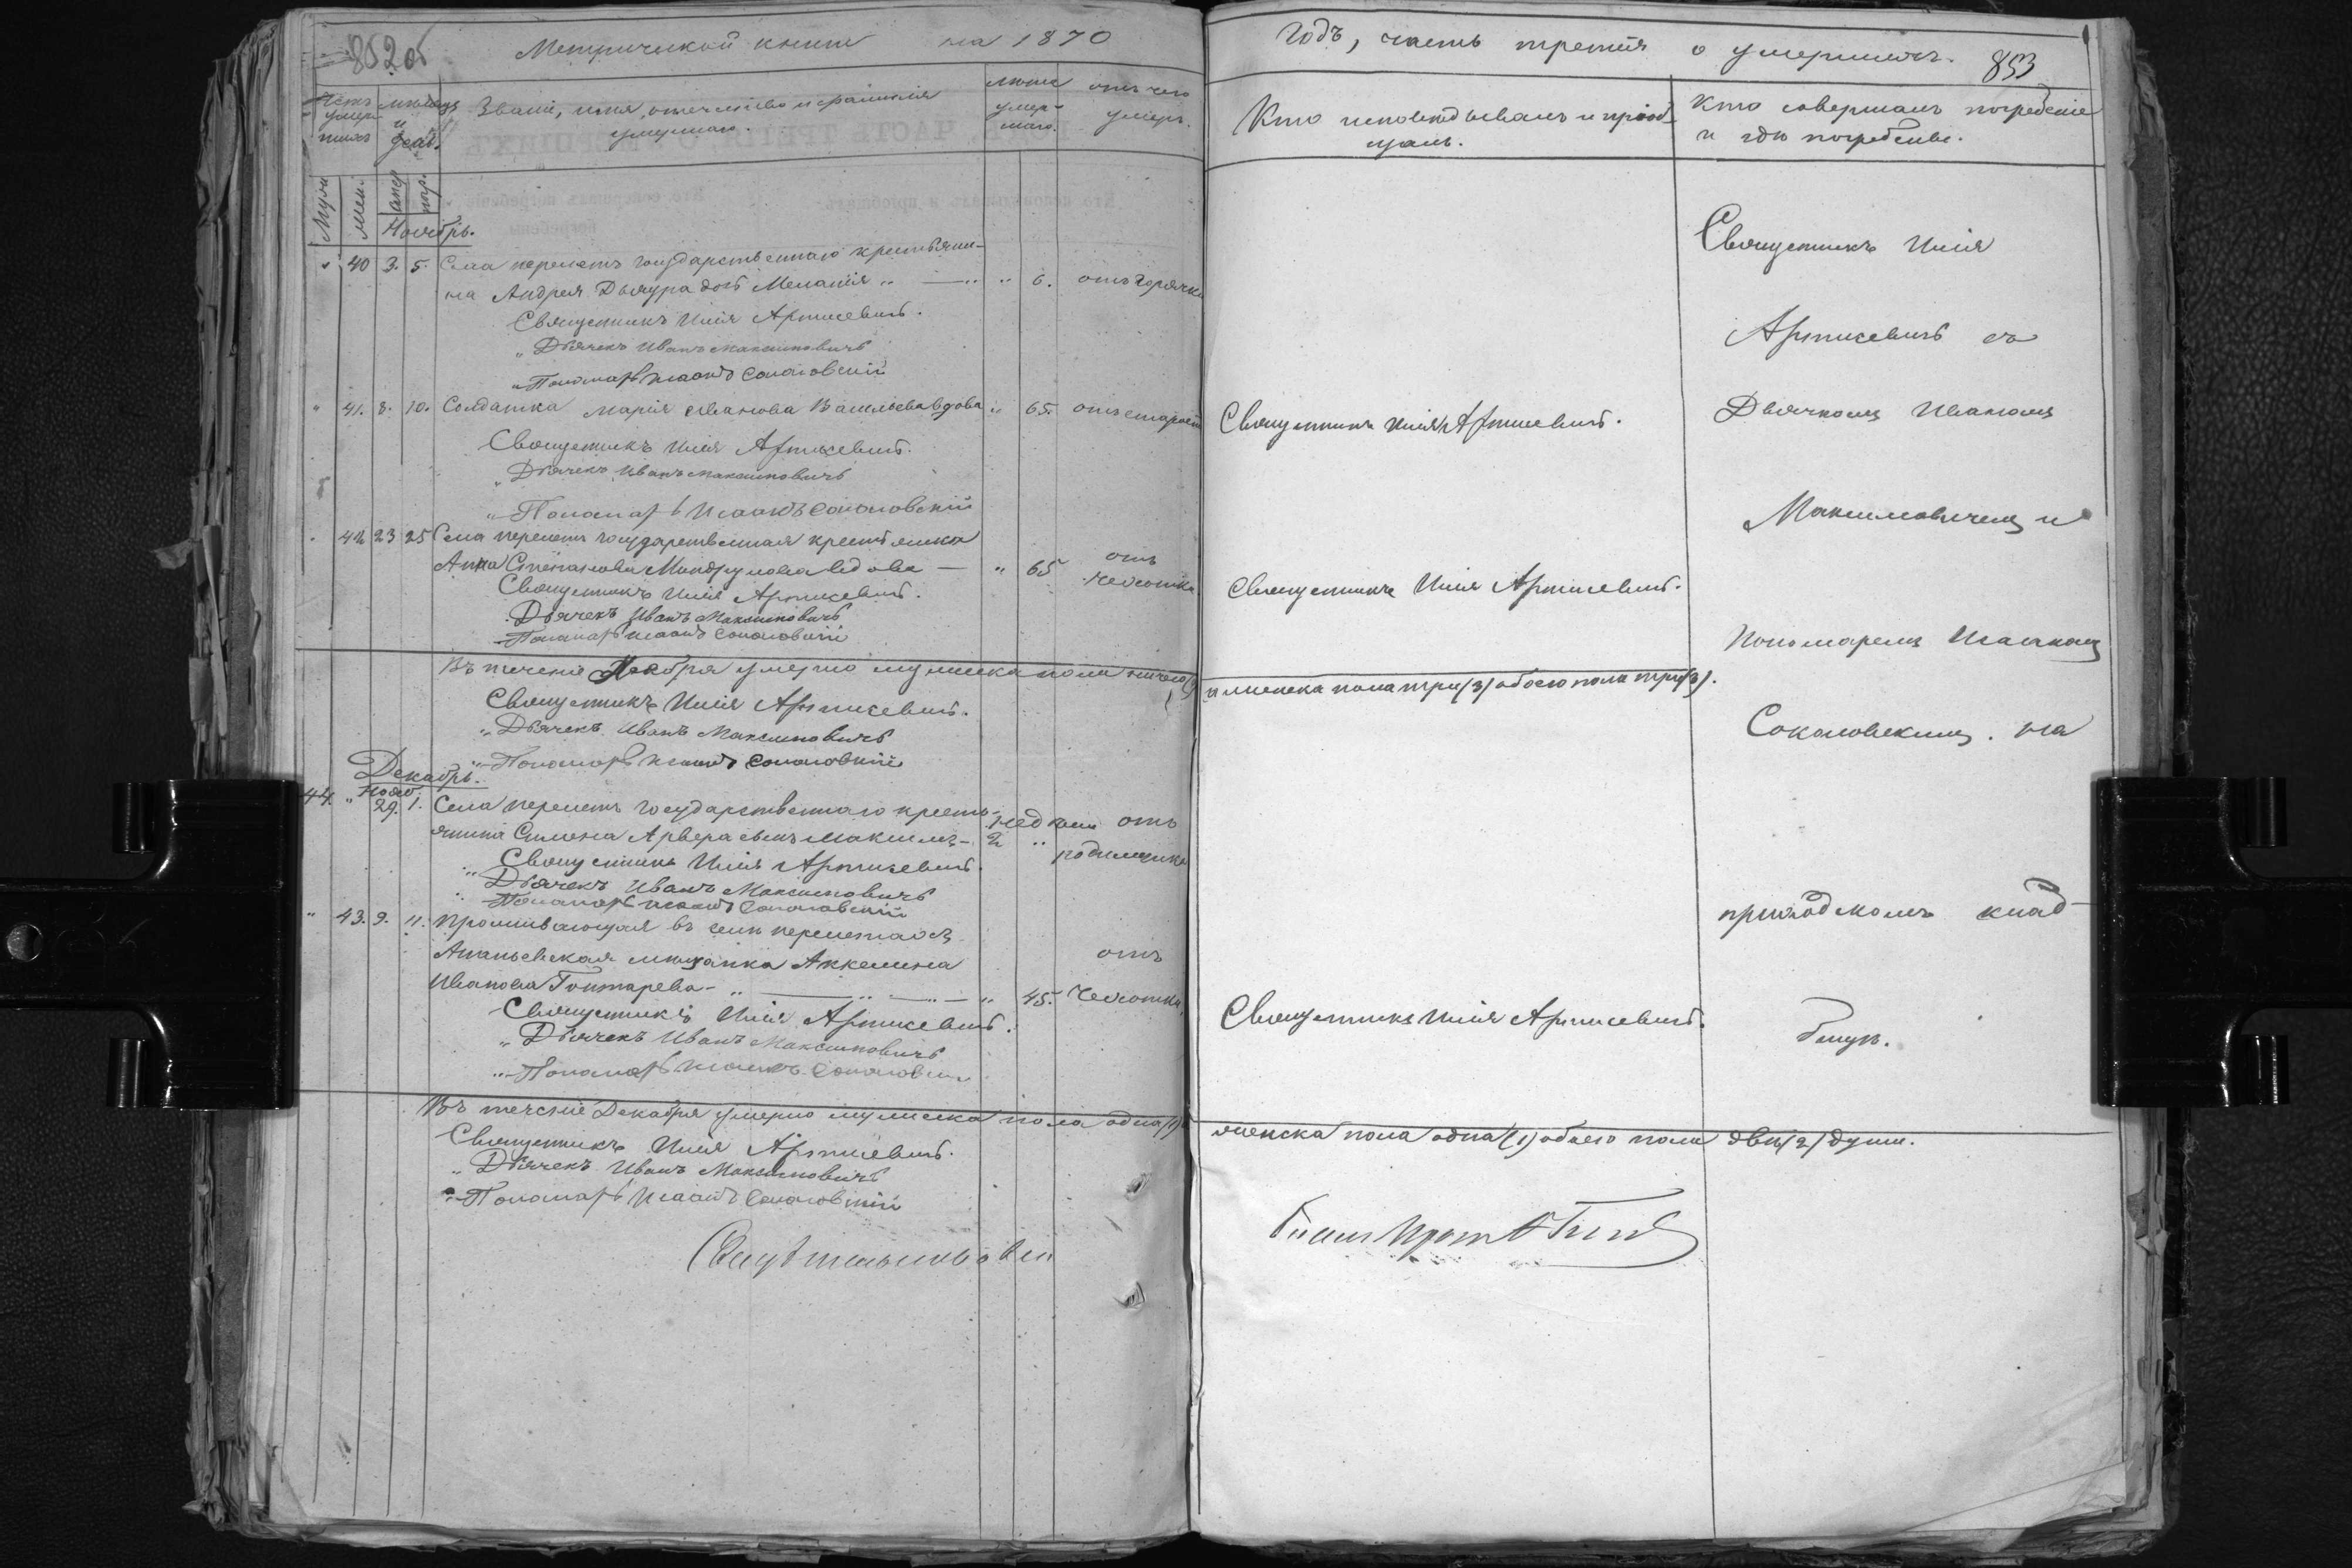 852об
Метрической книги на 1870
Счетъ умершихъ
Мѣсяцъ и день.
Званіе, имя, отечество и фамилія умершаго.
Лѣта умершаго.
отъ чего умеръ.
Муж.
Жен.
смер.
погр.
Ноябрь.
" 40 3. 5. Села перелетъ государственнаго крестьяни-
на Андрея Дьяура дочь Меланія " — " " 6. отъ горячки
Священникъ Илія Артисевичъ.
" Дьячекъ Иванъ Максимовичъ
" Пономарь Исаакъ Соколовскій
" 41. 8. 10. Солдатка Марія Иванова Васильева вдова " 65. отъ старост
Священникъ Илія Артисевичъ.
" Дьячекъ Иванъ Максимовичъ
" Пономарь Исаакъ Соколовскій
" 42 23 25 Села перелетъ государственная крестьянка
Анна Степанова Мандрулова вдова — " 65 отъ чахотки
Священникъ Илія Артисевичъ.
Дьячекъ Иванъ Максимовичъ
Пономарь Исаакъ Соколовскій
Въ теченіе Ноября умерло мужеска пола ничего
Священникъ Илія Артисевичъ.
" Дьячекъ Иванъ Максимовичъ
" Пономарь Исаакъ Соколовскій
Декабрь.
Нояб.
44. " 29. 1. Села перелетъ государственнаго кресть-
янина Симеона Арвера сынъ Максимъ - 2 недѣли отъ родимчика
Священникъ Илія Артисевичъ.
" Дьячекъ Иванъ Максимовичъ
" Пономарь Исаакъ Соколовскій
" 43. 9. 11. Проживающая въ селѣ перелетахъ
Ананьевская мѣщанка Аккелина отъ
Иванова Гонтарева - " — " — " — " 45. чахотки
Священникъ Илія Артисевичъ.
" Дьячекъ Иванъ Максимовичъ
" Пономарь Исаакъ Соколовскій
Въ теченіе Декабря умерло мужеска пола одна (1)
Священникъ Илія Артисевичъ.
" Дьячекъ Иванъ Максимовичъ
" Пономарь Исаакъ Соколовскій
годъ, часть третія о умершихъ.
853
Кто исповѣдывалъ и пріоб-
щалъ.
Кто совершалъ погребеніе
и гдѣ погребены.
Священникъ Илія
Артисевичъ съ
Священникъ Илія Артисевичъ.
Дьячкомъ Иваномъ
Максимовичемъ и
Священникъ Илія Артисевичъ.
Пономаремъ Исаакомъ
и женска пола три (3) обоего пола три (3).
Соколовскимъ. на
приходскомъ клад-
Священникъ Илія Артисевичъ.
бищѣ.
женска пола одна (1) обоего пола двѣ (2) души.